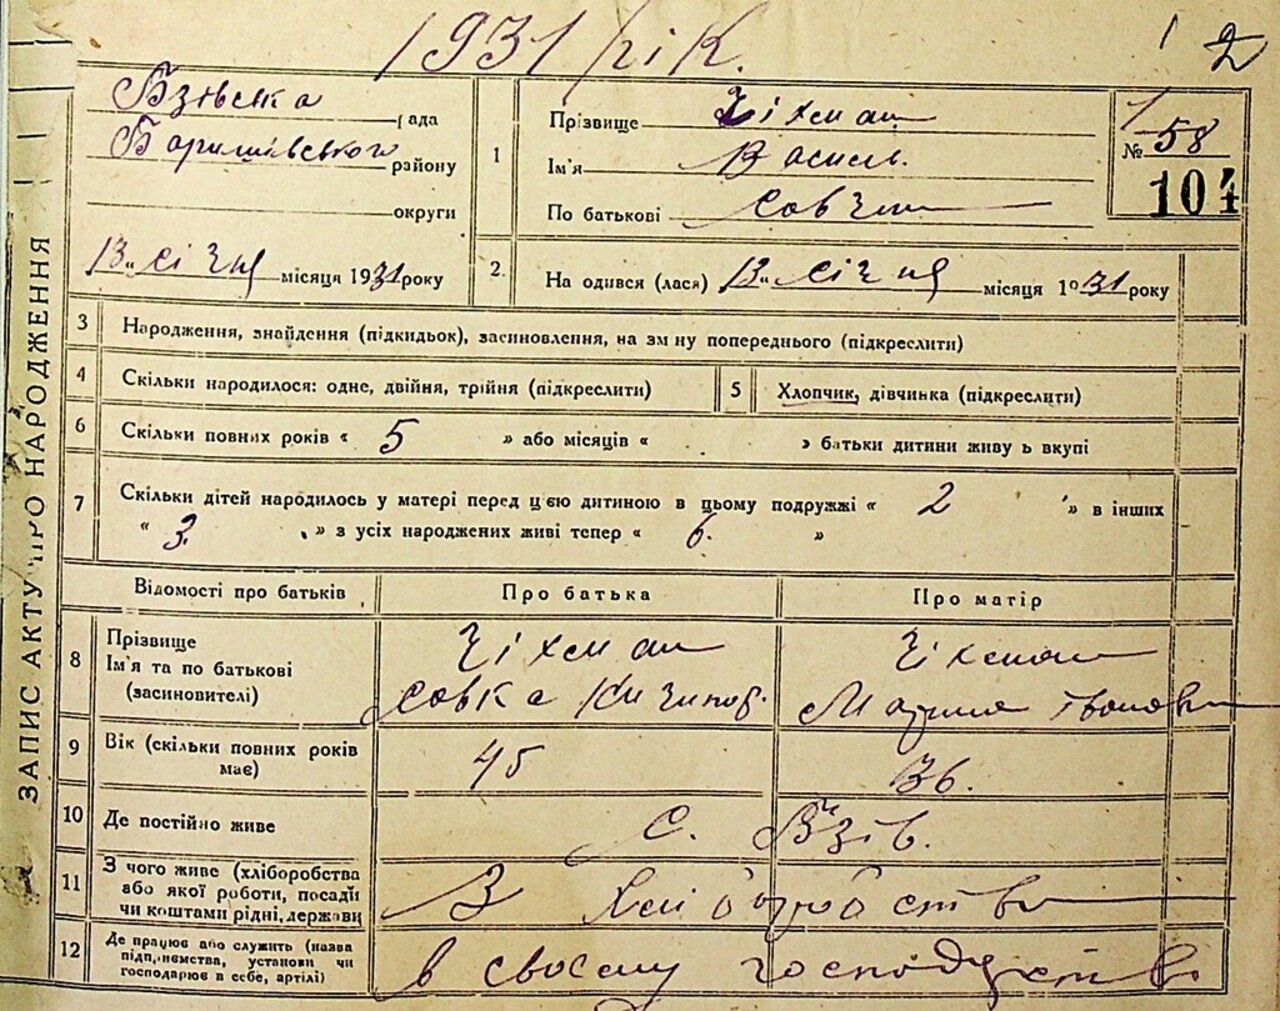 1931 рік.
1 2
ЗАПИС АКТУ ПРО НАРОДЖЕННЯ
Бзівська рада
Баришівського району
округи
13 " січня місяця 1931 року
1
Прізвище Чіхман
Ім'я Василь.
По батькові Совчин
№ 58
104
2. На одився (лася) 13 " січня місяця 1931 року
3 Народження, знайдення (підкидьок), засиновлення, на зм ну попереднього (підкреслити)
4 Скільки народилося: одне, двійня, трійня (підкреслити)
5 Хлопчик, дівчинка (підкреслити)
6 Скільки повних років « 5 » або місяців « » батьки дитини живу ь вкупі
7 Скільки дітей народилось у матері перед цією дитиною в цьому подружжі « 2 » в інших
« 3. » з усіх народжених живі тепер « 6. »
Відомості про батьків Про батька Про матір
8 Прізвище Чіхман Чіхман
Ім'я та по батькові
(засиновителі) Совка Ничипор. Марина Івановн
9 Вік (скільки повних років
має) 45 36.
10 Де постійно живе С. Бзів.
11 З чого живе (хліборобства
або якої роботи, посади
чи коштами рідні, держави
З Хліборобства
12 Де працює або служить (назва
підприємства, установи чи
господарює в себе, артілі)
в своєму господарстві